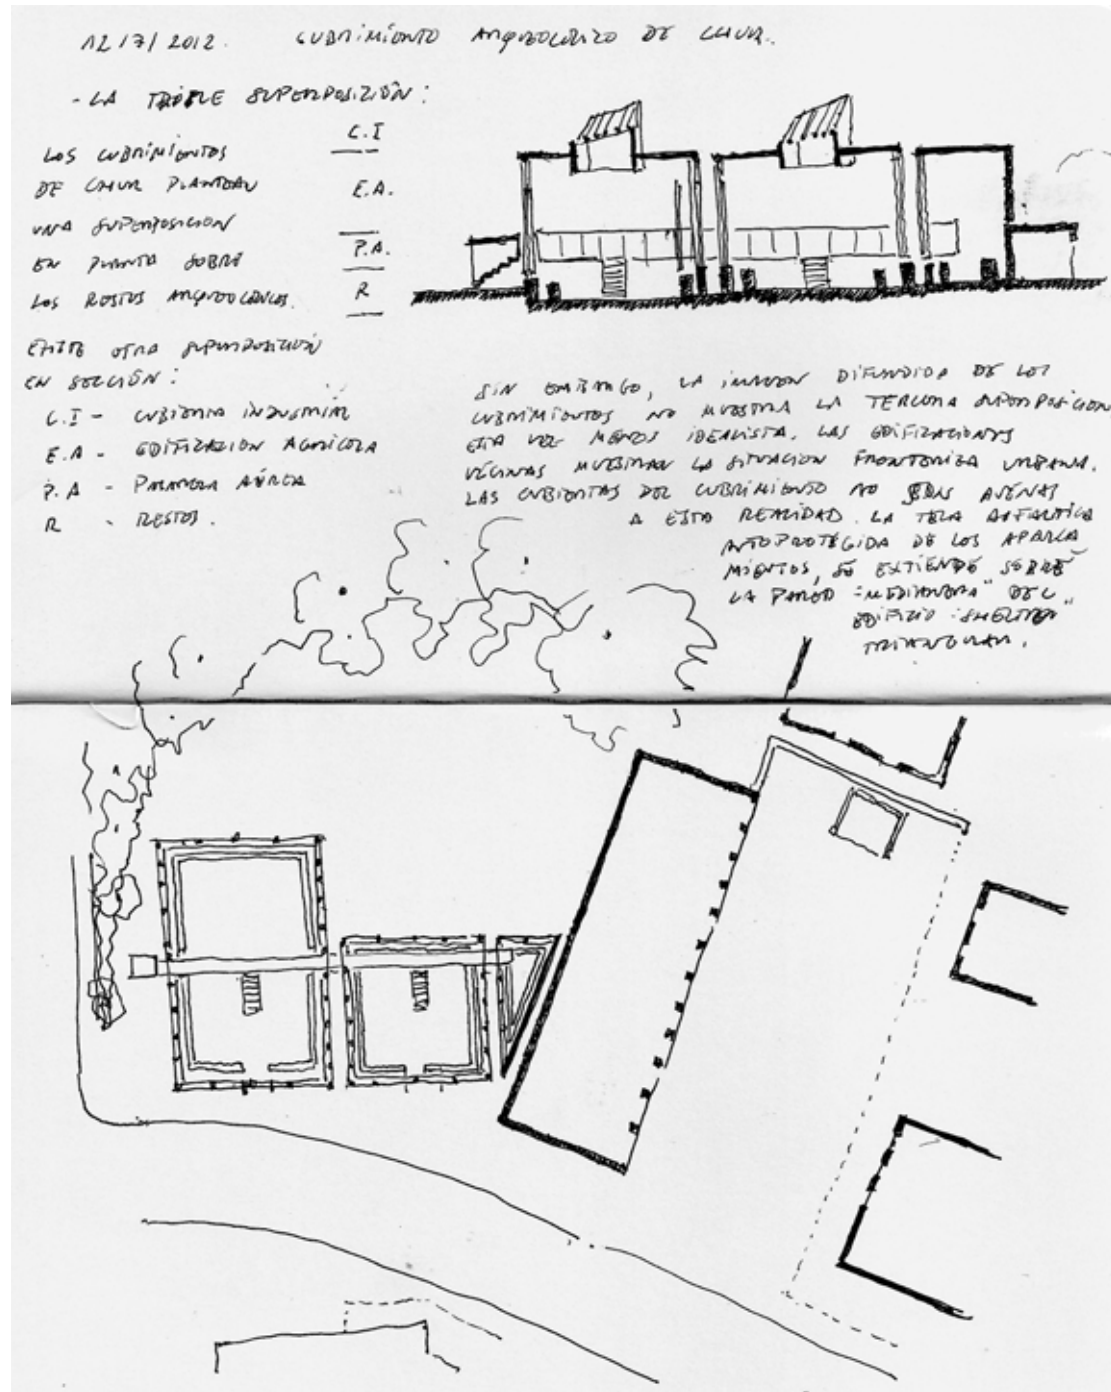 12/7/2012. CUBRIMIENTO ARQUEOLÓGICO DE CHUR.
- LA TRIPLE SUPERPOSICIÓN:
LOS CUBRIMIENTOS
DE CHUR PLANTEAN
UNA SUPERPOSICION
EN PLANTA SOBRE
LOS RESTOS ARQUEOLÓGICOS.
C.I
E.A.
P.A.
R
EXISTE OTRA SUPERPOSICIÓN
EN SECCIÓN:
C.I - CUBIERTA INDUSTRIAL
E.A - EDIFICACION AGRICOLA
P.A - PASARELA AÉREA
R - RESTOS.
SIN EMBARGO, LA IMAGEN DIFUNDIDA DE LOS
CUBRIMIENTOS NO MUESTRA LA TERCERA SUPERPOSICION
ESTA VEZ MENOS IDEALISTA. LAS EDIFICACIONES
VECINAS MUESTRAN LA SITUACION FRONTERIZA URBANA.
LAS CUBIERTAS DEL CUBRIMIENTO NO SON AJENAS
A ESTA REALIDAD. LA TELA ASFALTICA
AUTOPROTEGIDA DE LOS APARCA
MIENTOS, SE EXTIENDE SOBRE
LA PARED "MEDIANERA" DEL
EDIFICIO "SHELTER"
TRIANGULAR.